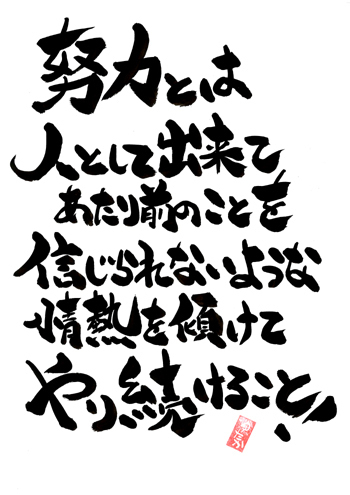 努力とは
人として出来て
あたり前のことを
信じられないような
情熱を傾けて
やり続けること!